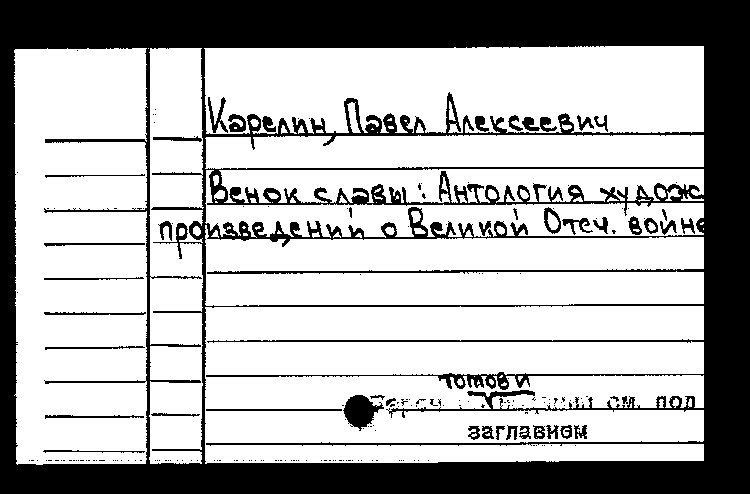 Карелин, Павел Алексеевич
Венок славы: Антология худож
произведений о Великой Отеч. войне
томов и
см. под
заглавием